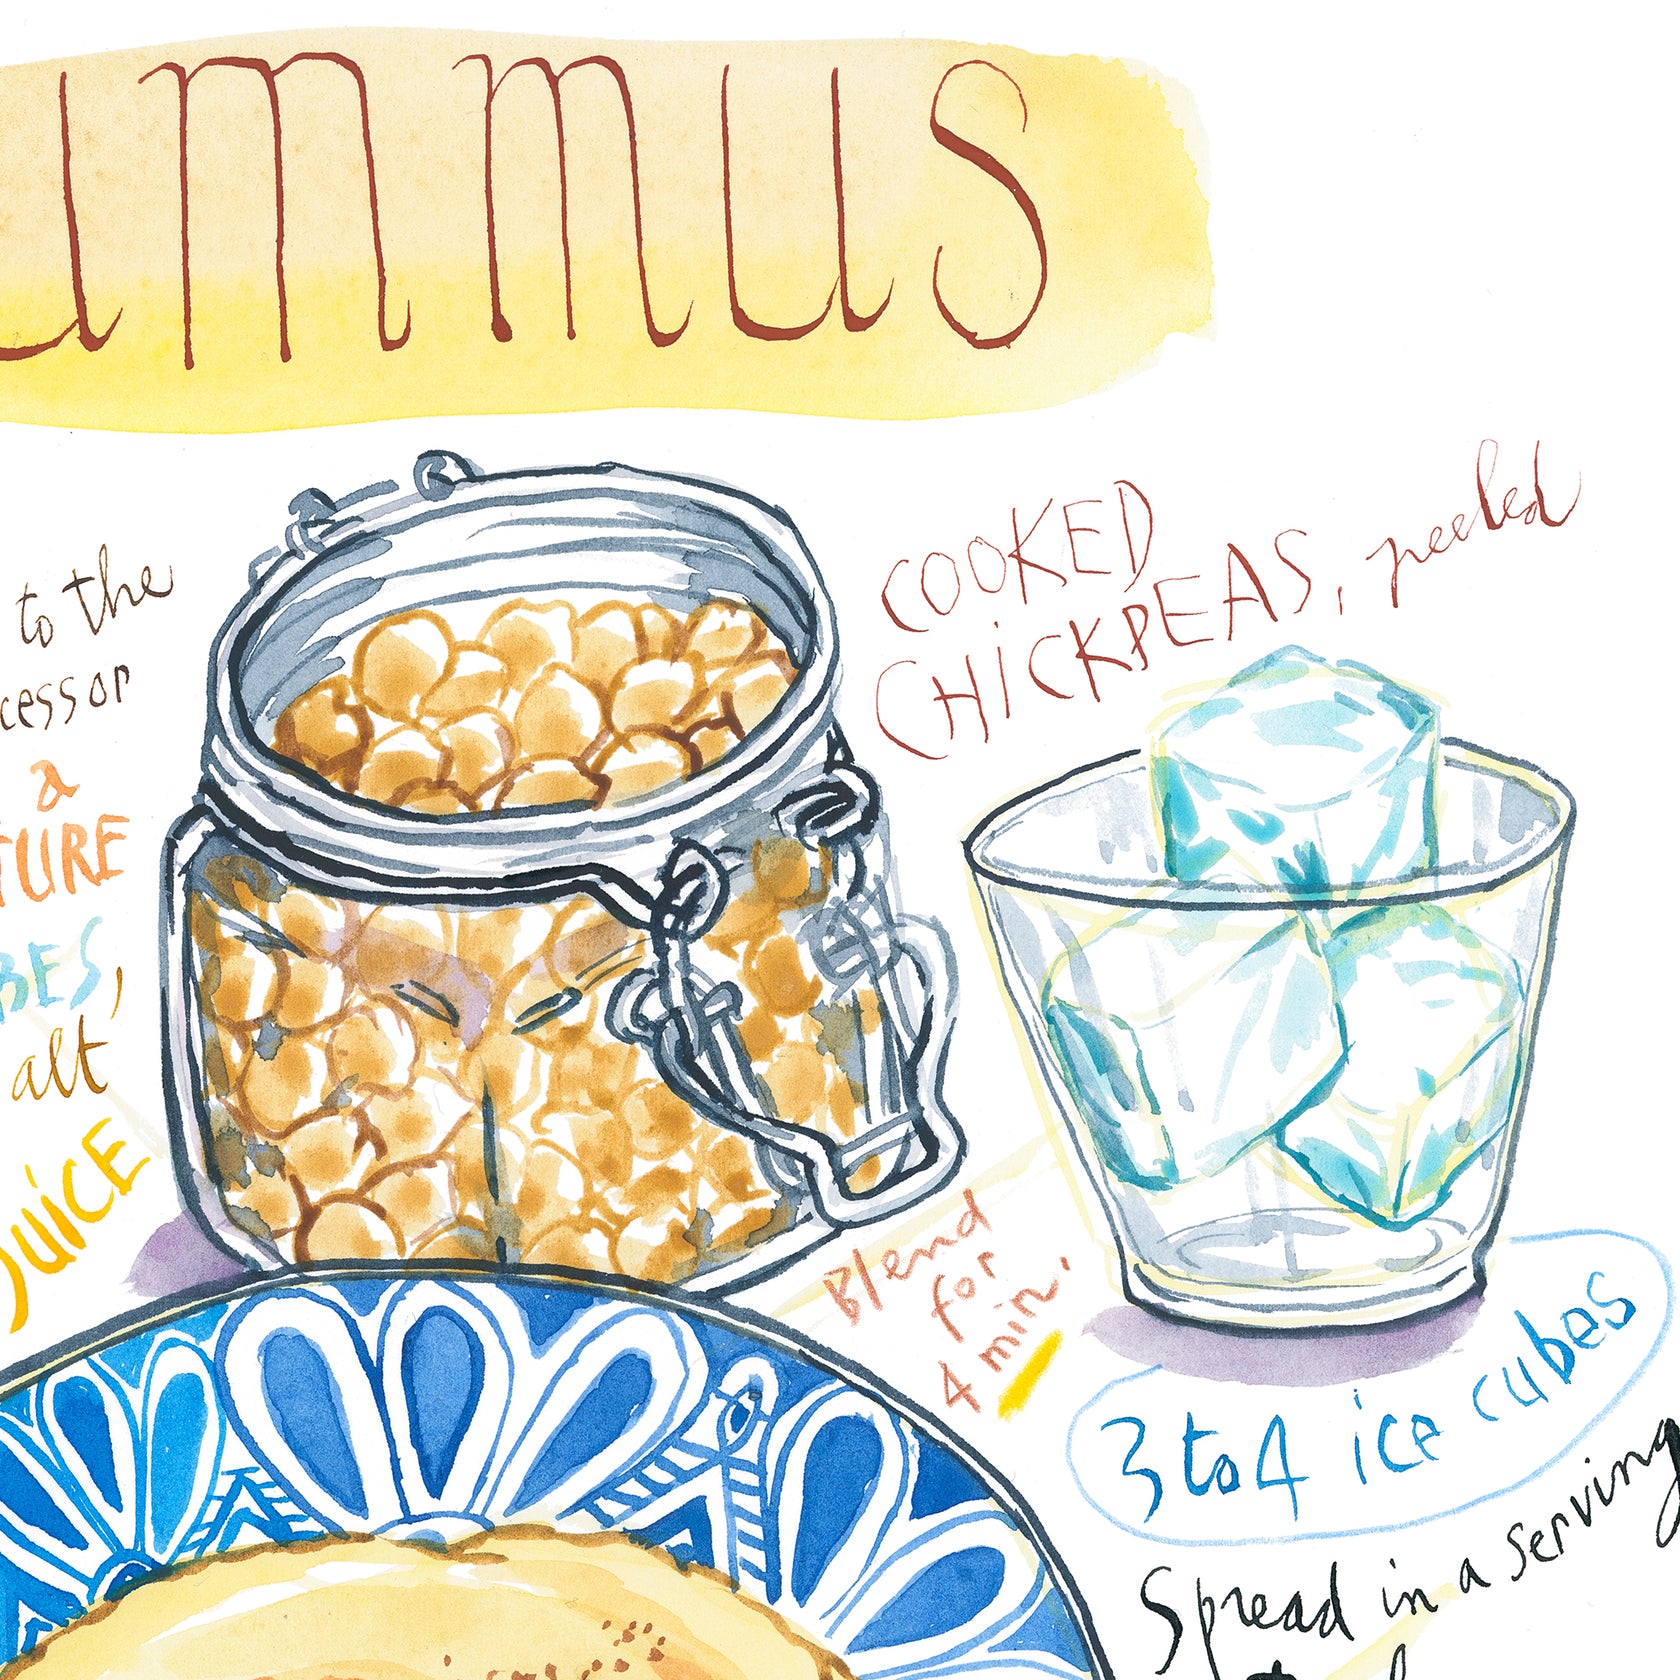 ummus
to the
cessor
a
TURE
BES,
alt
JUiCE
COOKED
CHiCKPEAS, peeled
Blend
for
4 min.
3 to 4 ice cubes
Spread in a serving